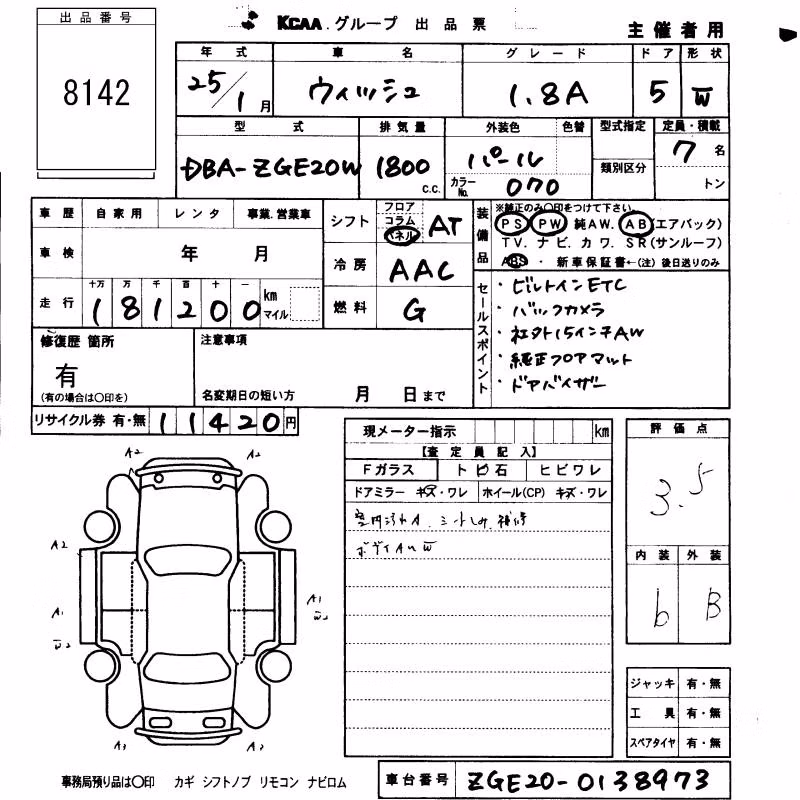 出品番号
8142
KCAA.グループ 出品票
主催者用
年式 車名 グレード ドア 形状
25/1月 ウィッシュ 1.8A 5 W
型式 排気量 外装色 色替 型式指定 定員・積載
DBA-ZGE20W 1800 c.c. パール 7名
カラーNo. 070 類別区分 トン
車歴 自家用 レンタ 事業.営業車
車検 年 月
走行 十万 万 千 百 十 一
181200 km マイル
シフト フロア コラム パネル AT
冷房 AAC
燃料 G
装備品
※純正のみ〇印をつけて下さい。
PS PW 純AW. AB(エアバック)
TV. ナビ. カワ. SR(サンルーフ)
ABS・新車保証書←(注) 後日送りのみ
セールスポイント
・ビルトインETC
・バックカメラ
・社外15インチAW
・純正フロアマット
・ドアバイザー
修復歴 箇所
有
(有の場合は〇印を)
注意事項
名変期日の短い方 月 日まで
リサイクル券 有・無 11420円
現メーター指示 km
【査定員記入】
Fガラス トビ石 ヒビワレ
ドアミラー キズ・ワレ ホイール(CP) キズ・ワレ
室内汚れA. シートしみ. 補修
ボディAUW
評価点
3.5
内装 外装
b B
ジャッキ 有・無
工具 有・無
スペアタイヤ 有・無
A2 A2
A2
A1 A1
W2 W2
A3 A2
事務局預り品は〇印 カギ シフトノブ リモコン ナビロム
車台番号 ZGE20-0138973